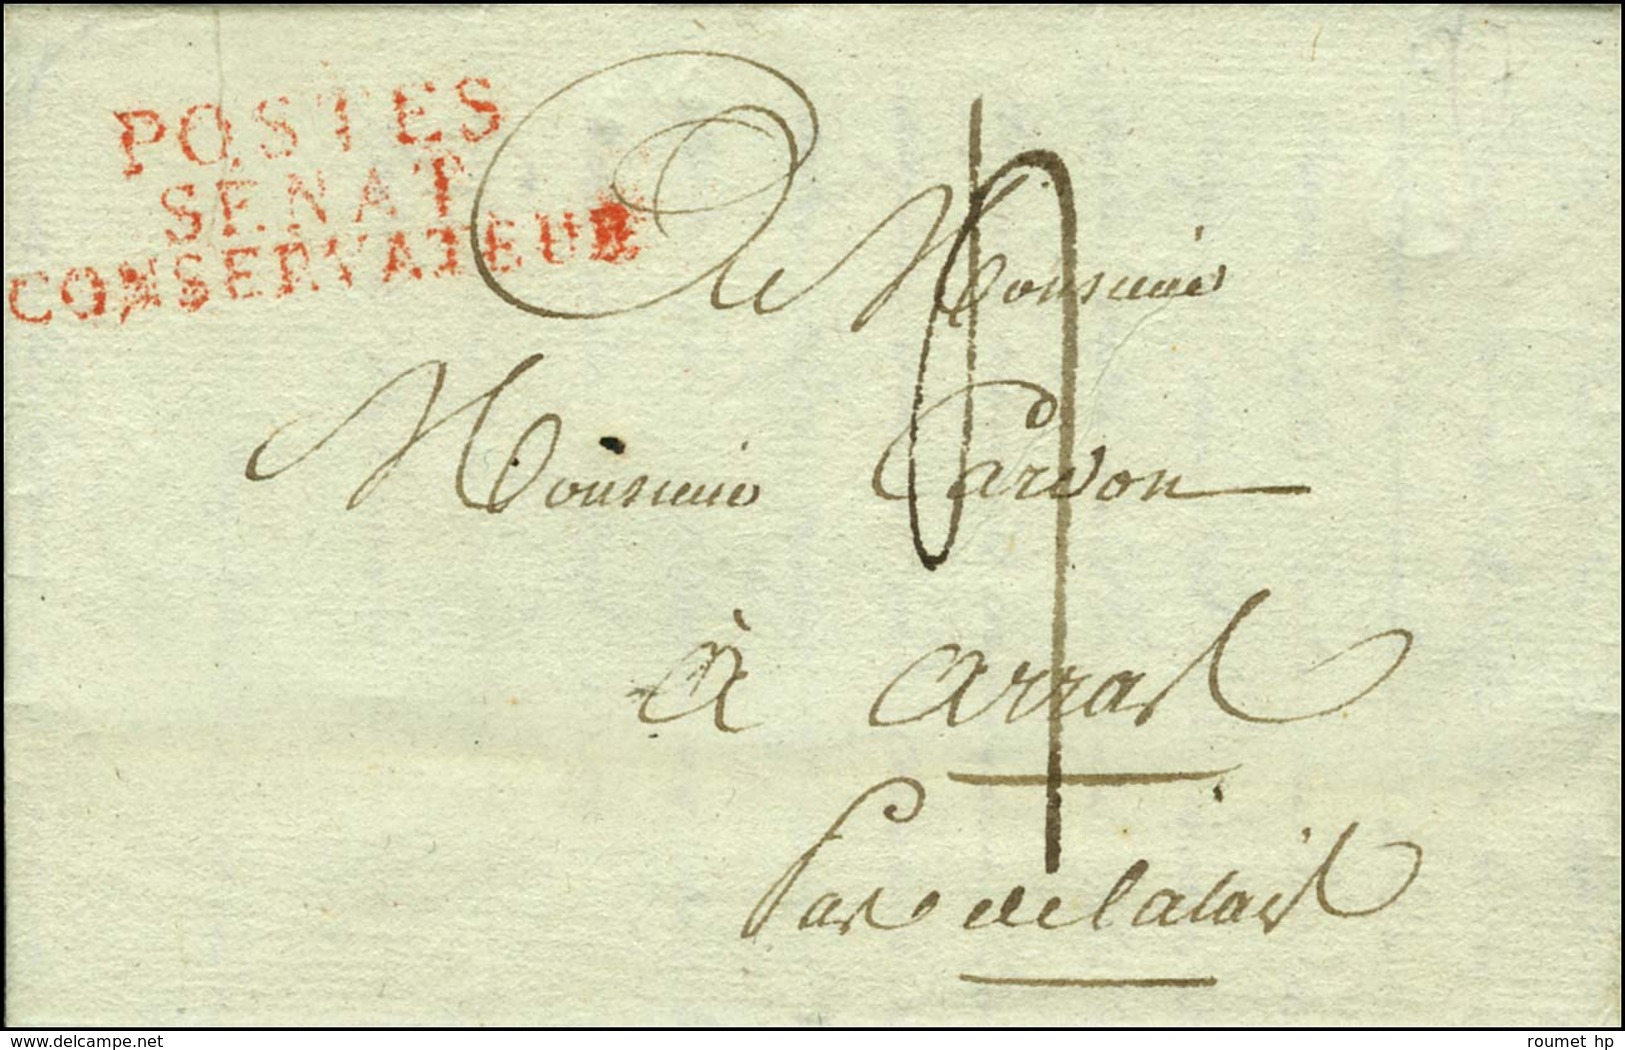 POSTES
SÉNAT
CONSERVATEUR
A Monsieur
Monsieur Cardon
à arras
Pas de Calais
www.delcampe.net
roumet hp